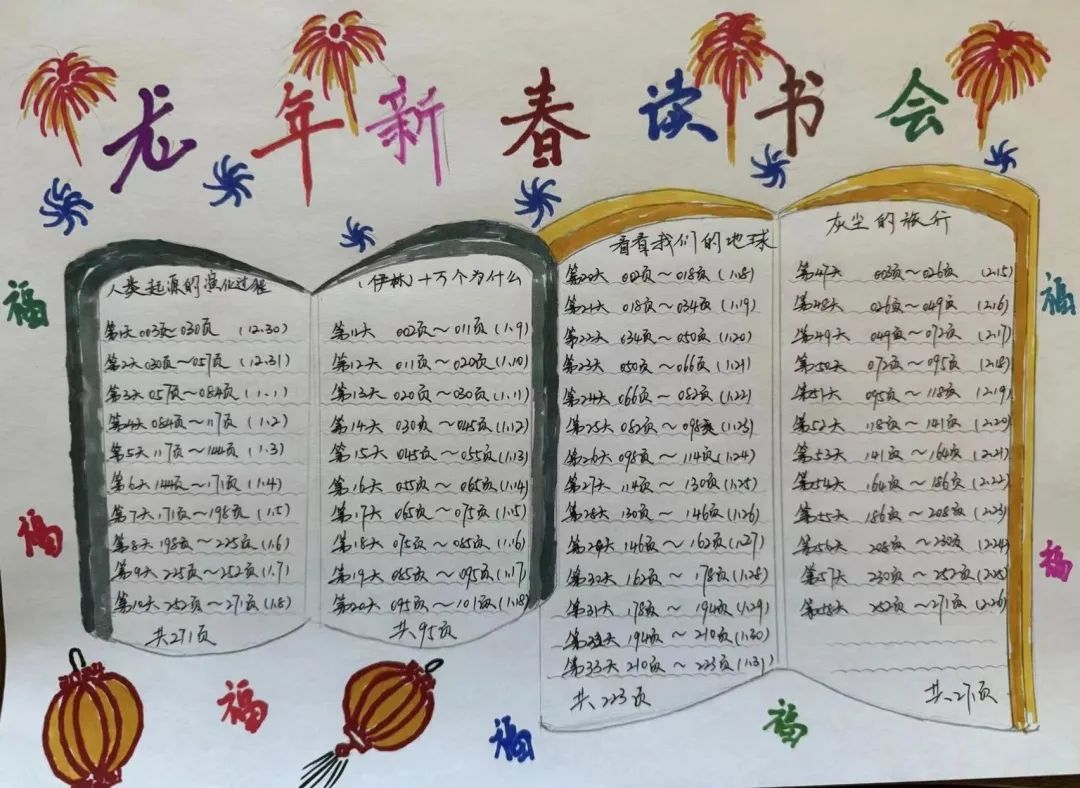 龙年新春读书会
人类起源的演化过程
第1天 003页~030页 (12.30)
第2天 030页~057页 (12.31)
第3天 057页~084页 (1.1)
第4天 084页~117页 (1.2)
第5天 117页~144页 (1.3)
第6天 144页~171页 (1.4)
第7天 171页~198页 (1.5)
第8天 198页~225页 (1.6)
第9天 225页~252页 (1.7)
第10天 252页~271页 (1.8)
共271页
(伊林)十万个为什么
第11天 002页~011页 (1.9)
第12天 011页~020页 (1.10)
第13天 020页~030页 (1.11)
第14天 030页~045页 (1.12)
第15天 045页~055页 (1.13)
第16天 055页~065页 (1.14)
第17天 065页~075页 (1.15)
第18天 075页~085页 (1.16)
第19天 085页~095页 (1.17)
第20天 095页~101页 (1.18)
共95页
看看我们的地球
第20天 002页~018页 (1.18)
第21天 018页~034页 (1.19)
第22天 034页~050页 (1.20)
第23天 050页~066页 (1.21)
第24天 066页~082页 (1.22)
第25天 082页~098页 (1.23)
第26天 098页~114页 (1.24)
第27天 114页~130页 (1.25)
第28天 130页~146页 (1.26)
第29天 146页~162页 (1.27)
第30天 162页~178页 (1.28)
第31天 178页~194页 (1.29)
第32天 194页~210页 (1.30)
第33天 210页~223页 (1.31)
共223页
灰尘的旅行
第47天 003页~026页 (2.15)
第48天 026页~049页 (2.16)
第49天 049页~072页 (2.17)
第50天 072页~095页 (2.18)
第51天 095页~118页 (2.19)
第52天 118页~141页 (2.20)
第53天 141页~164页 (2.21)
第54天 164页~186页 (2.22)
第55天 186页~208页 (2.23)
第56天 208页~230页 (2.24)
第57天 230页~252页 (2.25)
第58天 252页~271页 (2.26)
共271页
福
福
福
福
福
福
福